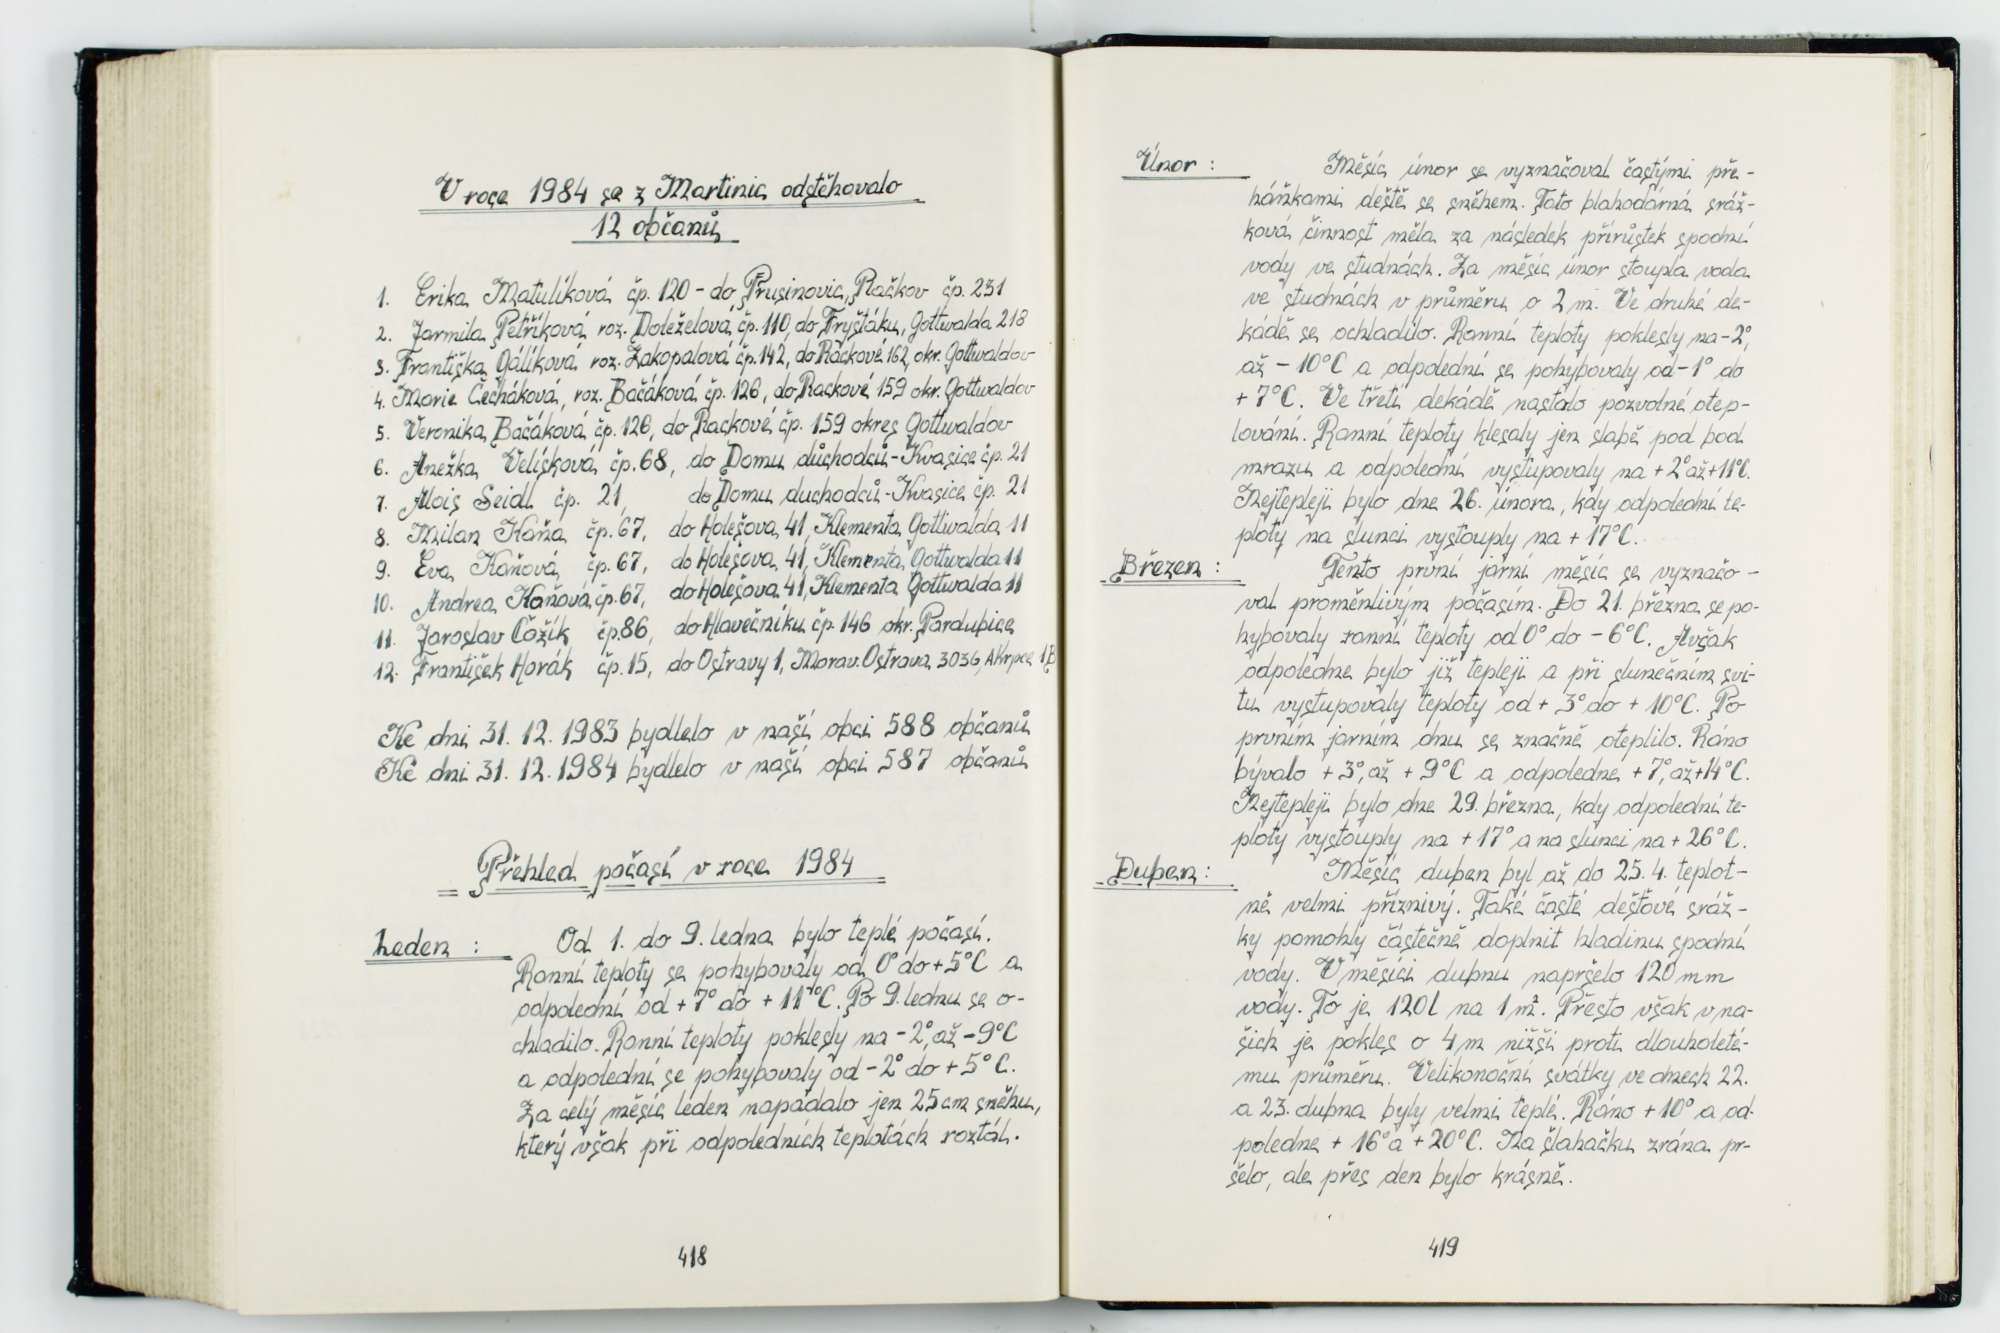 V roce 1984 se z Martinic odstěhovalo
12 občanů
1. Erika Matulíková čp. 120 - do Prusinovic, Račkov čp. 231
2. Jarmila Petříková roz. Doleželová čp. 110, do Fryštáku, Gottwalda 218
3. Františka Gálíková roz. Zakopalová čp. 142, do Rackové 162, okr. Gottwaldov
4. Marie Čecháková, roz. Bačáková čp. 126, do Rackové 159 okr. Gottwaldov
5. Veronika Bačáková čp. 126, do Rackové čp. 159 okres Gottwaldov
6. Anežka Velísková čp. 68, do Domu důchodců - Kvasice čp. 21
7. Alois Seidl čp. 21, do Domu duchodců - Kvasice čp. 21
8. Milan Kaňa čp. 67, do Holešova 41, Klementa Gottwalda 11
9. Eva Kaňová čp. 67, do Holešova 41, Klementa Gottwalda 11
10. Andrea Kaňová čp. 67, do Holešova 41, Klementa Gottwalda 11
11. Jaroslav Čožík čp. 86, do Hlavečníku čp. 146 okr. Pardubice
12. František Horák čp. 15, do Ostravy 1, Morav. Ostrava 3036, AKrpce 1B
Ke dni 31. 12. 1983 bydlelo v naší obci 588 občanů
Ke dni 31. 12. 1984 bydlelo v naší obci 587 občanů
Přehled počasí v roce 1984
Leden : Od 1. do 9. ledna bylo teplé počasí.
Ranní teploty se pohybovaly od 0° do +5°C a
odpolední od +7° do +11°C. Po 9. lednu se o-
chladilo. Ranní teploty poklesly na -2°, až -9°C
a odpolední se pohybovaly od -2° do +5°C.
Za celý měsíc leden napadalo jen 25 cm sněhu,
který však při odpoledních teplotách roztál.
418
Únor : Měsíc únor se vyznačoval častými pře-
háňkami deště se sněhem. Tato blahodárná sráž-
ková činnost měla za následek přírůstek spodní
vody ve studnách. Za měsíc únor stoupla voda
ve studnách v průměru o 2 m. Ve druhé de-
kádě se ochladilo. Ranní teploty poklesly na -2°,
až -10°C a odpolední se pohybovaly od -1° do
+7°C. Ve třetí dekádě nastalo pozvolné otep-
lování. Ranní teploty klesaly jen slabě pod bod
mrazu a odpolední vystupovaly na +2° až +11°C.
Nejtepleji bylo dne 26. února, kdy odpolední te-
ploty na slunci vystouply na +17°C.
Březen : Tento první jarní měsíc se vyznačo-
val proměnlivým počasím. Do 21. března se po-
hybovaly ranní teploty od 0° do -6°C. Avšak
odpoledne bylo již tepleji a při slunečním svi-
tu vystupovaly teploty od +3° do +10°C. Po
prvním jarním dnu se značně oteplilo. Ráno
bývalo +3°, až +9°C a odpoledne +7°, až +14°C.
Nejtepleji bylo dne 29. března, kdy odpolední te-
ploty vystouply na +17° a na slunci na +26°C.
Duben : Měsíc duben byl až do 25. 4. teplot-
ně velmi příznivý. Také časté dešťové sráž-
ky pomohly částečně doplnit hladinu spodní
vody. V měsíci dubnu napršelo 120 mm
vody. To je 120 l na 1 m². Přesto však v na-
šich je pokles o 4 m nižší proti dlouholeté-
mu průměru. Velikonoční svátky ve dnech 22.
a 23. dubna byly velmi teplé. Ráno +10° a od-
poledne +16° a +20°C. Na šlahačku zrána pr-
šelo, ale přes den bylo krásně.
419